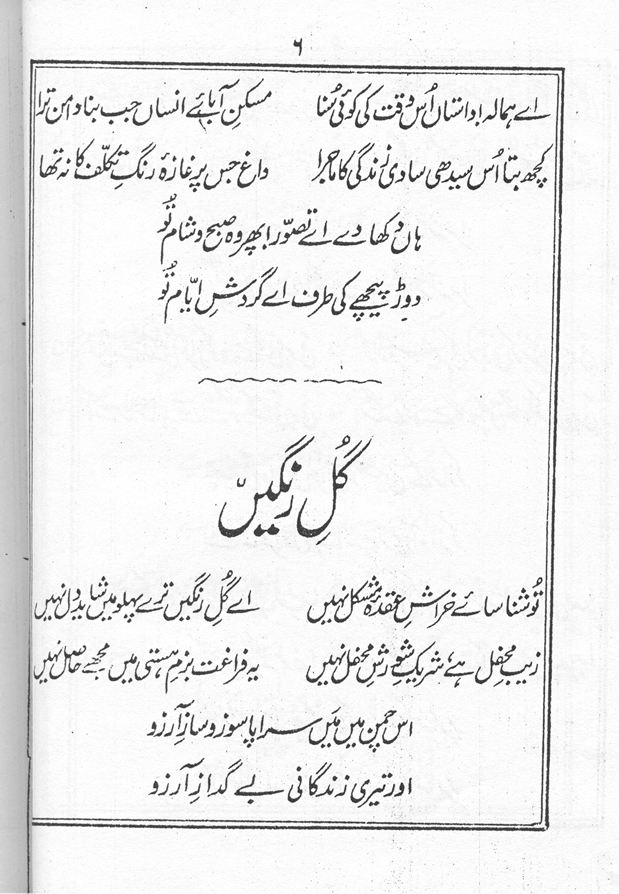 ۶
اے ہمالہ! داستاں اُس وقت کی کوئی سُنا مسکنِ آبائے انساں جب بنا دامن ترا
کچھ بتا اُس سیدھی سادی زندگی کا ماجرا داغ جس پر غازۂ رنگِ تکلّف کا نہ تھا
ہاں دکھا دے اے تصوّر! پھر وہ صبح و شام تُو
دوڑ پیچھے کی طرف اے گردشِ ایّام تُو
گُلِ رنگیں
تُو شناسائے خراشِ عقدۂ مشکل نہیں اے گُلِ رنگیں ترے پہلو میں شاید دل نہیں
زیبِ محفل ہے، شریکِ شورشِ محفل نہیں یہ فراغت بزمِ ہستی میں مجھے حاصل نہیں
اس چمن میں مَیں سراپا سوز و سازِ آرزو
اور تیری زندگانی بے گدازِ آرزو